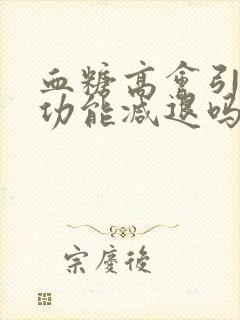 血糖高会引
功能减退吗
宗慶後